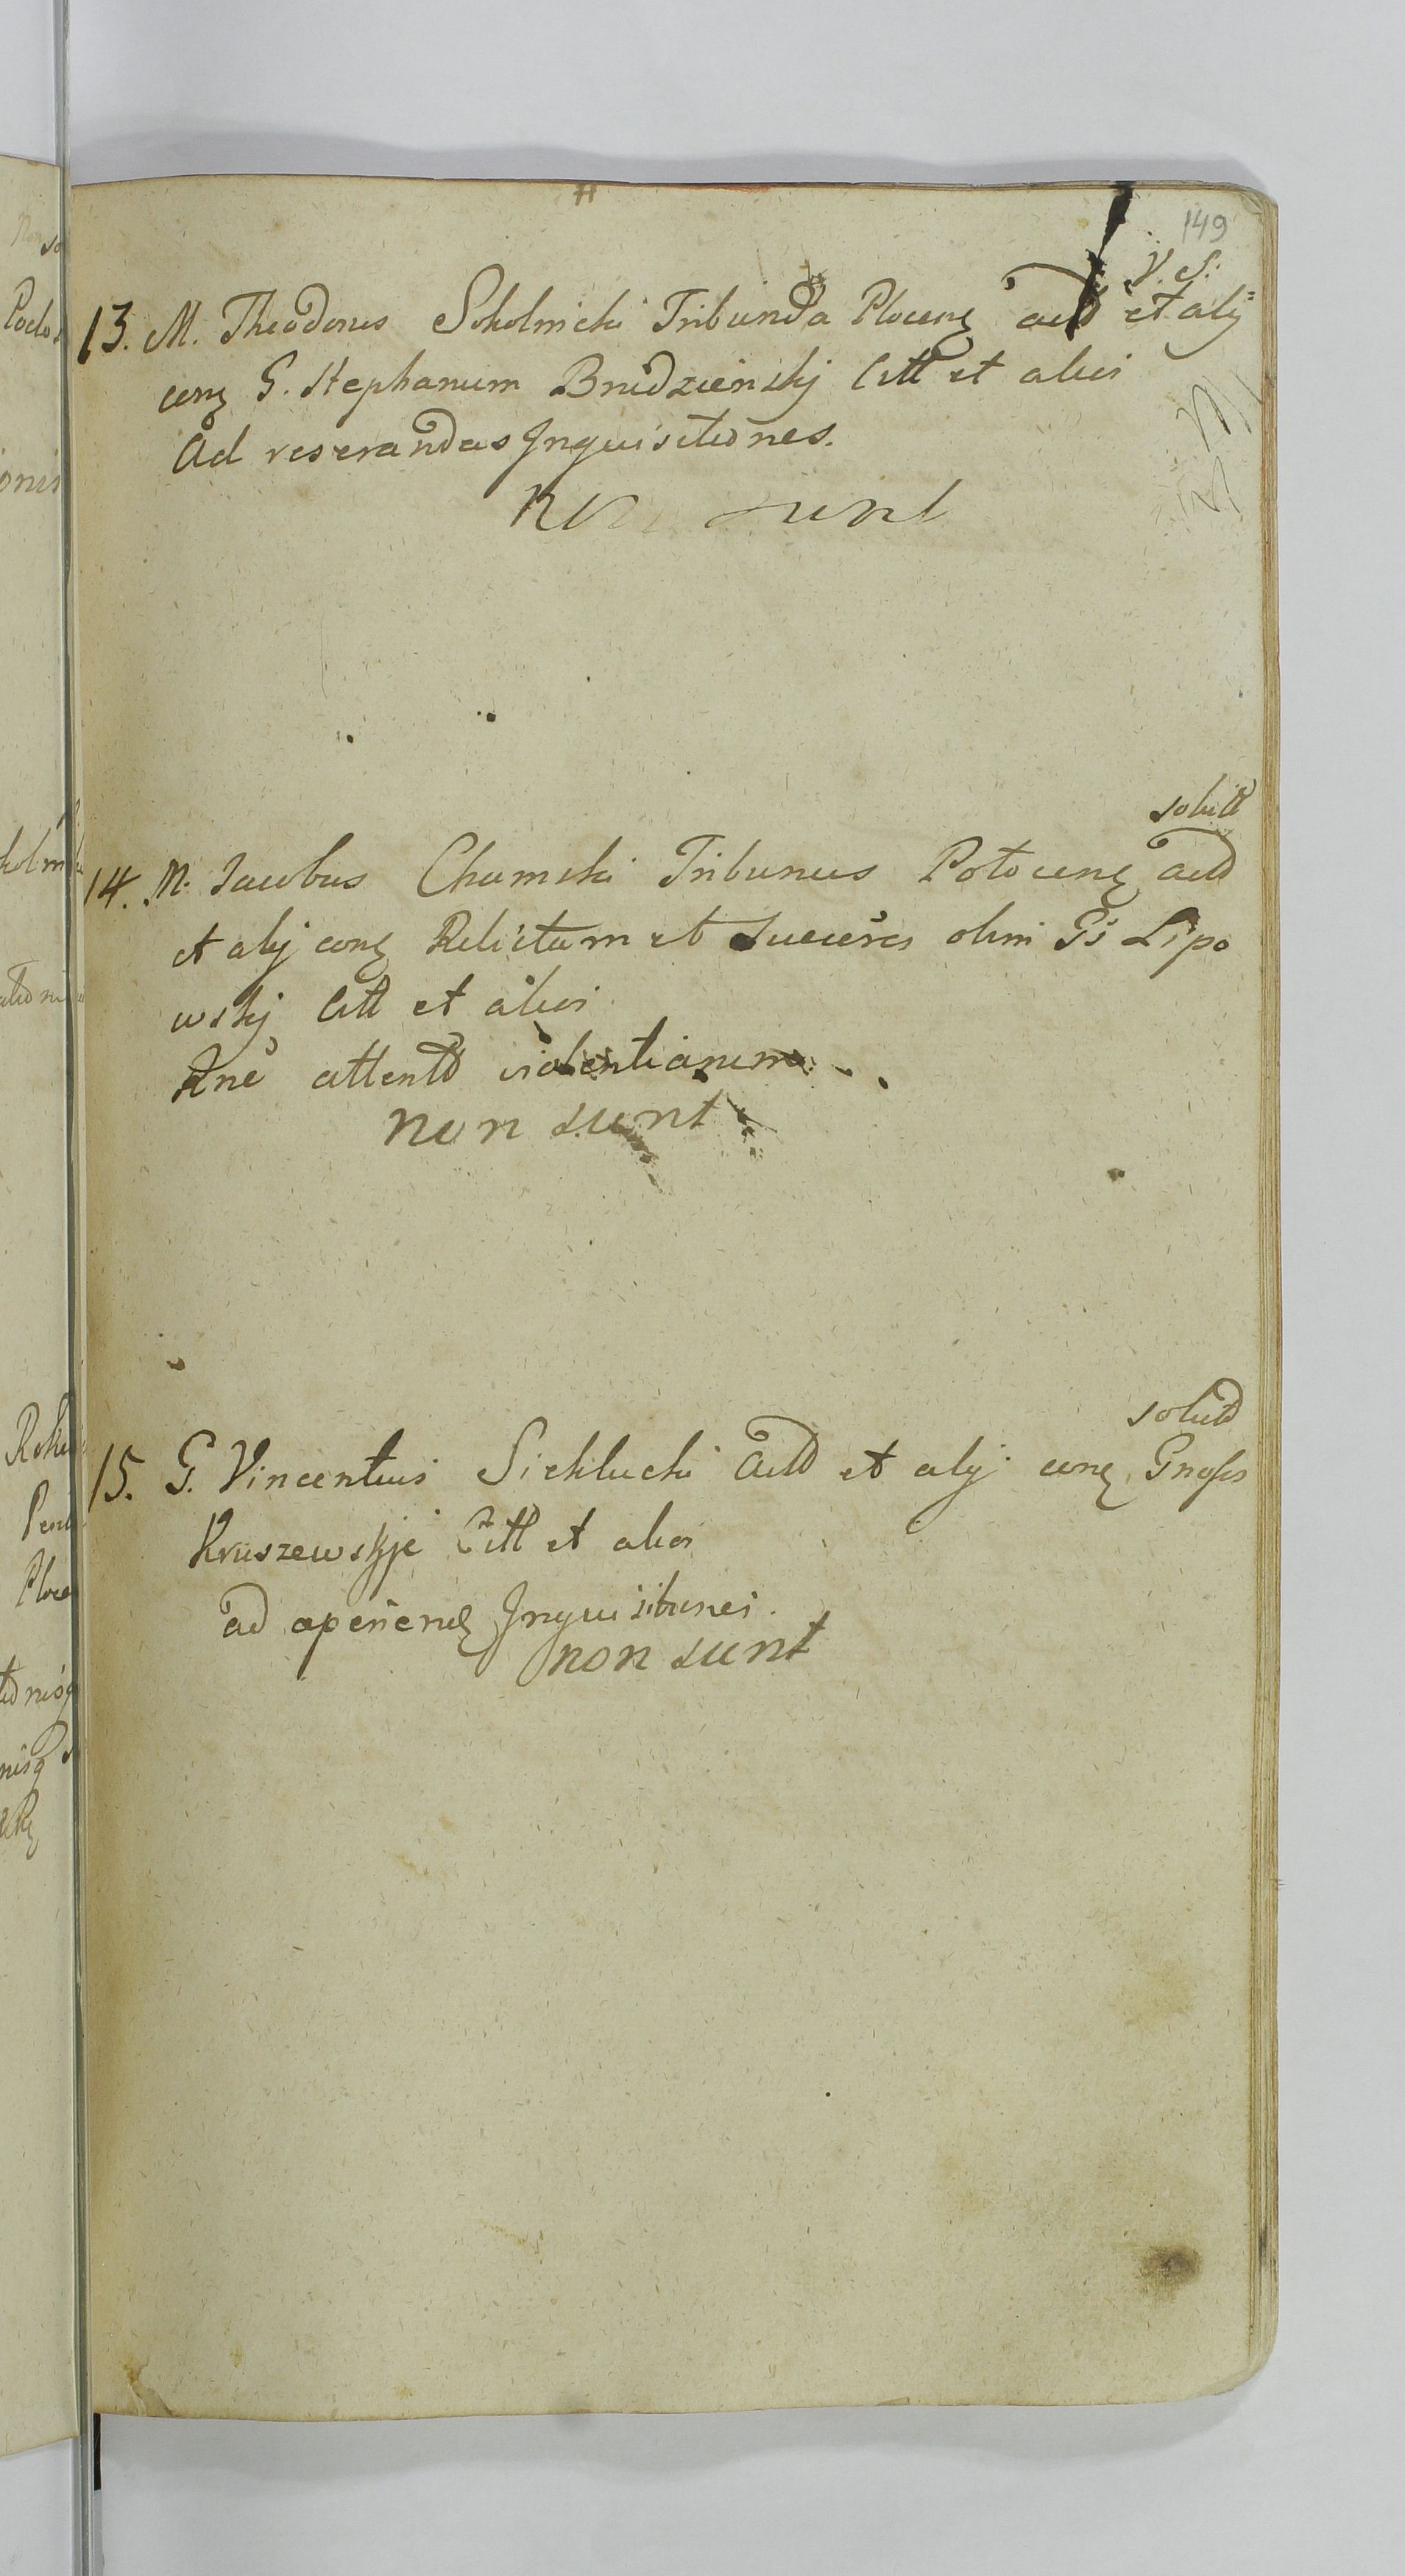 149
V. S.
13. M. Theodorus Sokolnicki Tribunida Plocens actt et alij
cong G. Stephanum Brudzienskj Citt et alios
Ad reserandas Inquisitiones.
Non sunt
solutt
14. M. Jacobus Chamski Tribunus Potocens actt
et alij cong Relictam et Succeres olim Gi Lipo
wskj Citt et alios
Rne attentt violentiarum
non sunt
solutt
15. G. Vincentius Sieklucki actt et alij cong Gnosos
Kruszewskje Citt et alios
ad aperiend Inquisitiones.
non sunt